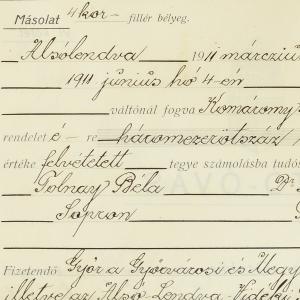 Másolat 4 kor — fillér bélyeg.
Alsólendva 1911 márcziu
1911 június hó 4-én
váltónál fogva Komáromy
rendelet é- re háromezerötszáz
értéke felvétetett tegye számolásba tudós
Tolnay Béla Dr
Sopron
Fizetendő Győr a Győrvárosi és Megy
illetve az Alsó Lendva Vidéki